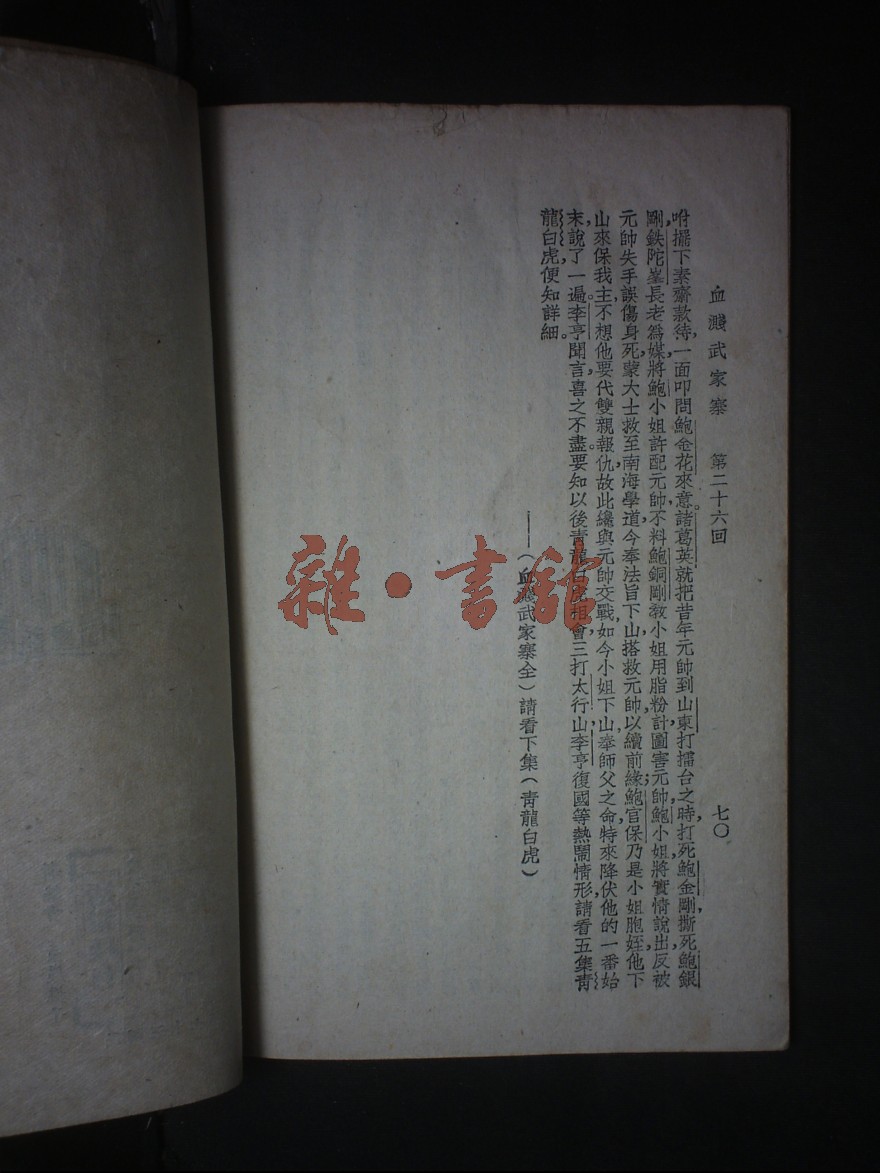 血濺武家寨　第二十六回　七〇
咐擺下素齋款待,一面叩問鮑金花來意。諸葛英就把昔年元帥到山東打擂台之時,打死鮑金剛,撕死鮑銀
剛,鉄陀峯長老爲媒,將鮑小姐許配元帥,不料鮑銅剛教小姐用脂粉計圖害元帥,鮑小姐將實情說出,反被
元帥失手誤傷身死,蒙大士救至南海學道,今奉法旨下山,搭救元帥,以續前緣,鮑官保乃是小姐胞姪,他下
山來保我主。不想他要代雙親報仇。故此纔與元帥交戰,如今小姐下山,奉師父之命,特來降伏他的一番始
末,說了一遍。李亨聞言,喜之不盡,要知以後青龍白虎相會,三打太行山,李亨復國等熱鬧情形,請看五集青
龍白虎,便知詳細。
——(血濺武家寨全)請看下集(青龍白虎)
雜·書館